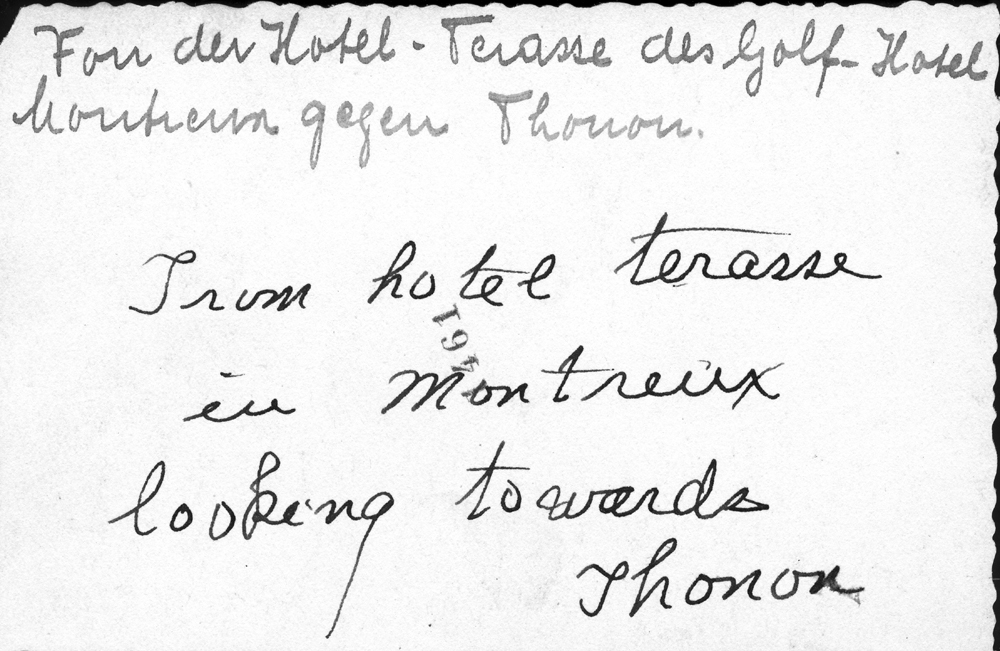 Fon der Hotel-Terasse des Golf-Hotel
Montreux gegen Thonon.
From hotel terasse
in Montreux
looking towards
Thonon